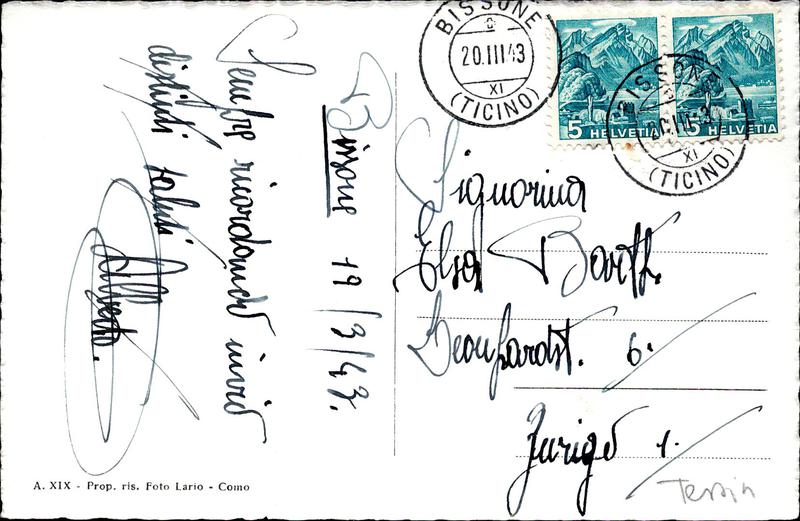 Bissone 19/3/43.
Sempre ricordando invio
distinti saluti
Alberto.
BISSONE
20.III.43
XI
(TICINO)
5 HELVETIA
5 HELVETIA
BISSONE
20.III.43
XI
(TICINO)
Signorina
Elsa Barth.
Leonhardst. 6.
Zurigo 1.
Tessin
A. XIX - Prop. ris. Foto Lario - Como